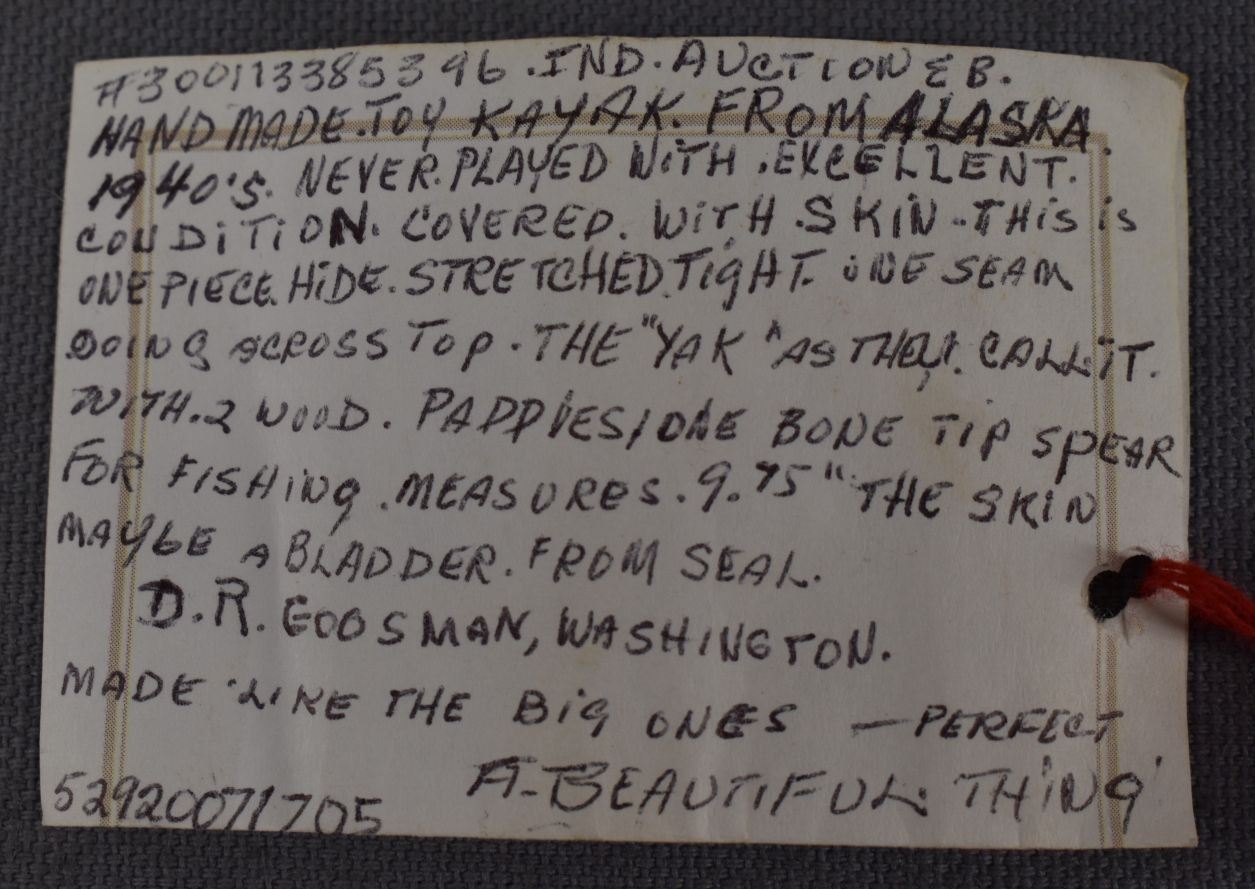 #300173385396. IND. AUCTION EB.
HAND MADE. TOY KAYAK. FROM ALASKA.
1940's. NEVER. PLAYED WITH. EXCELLENT.
CONDITION. COVERED. WITH. SKIN - THIS is
ONE PIECE. HIDE. STRETCHED. TIGHT. ONE SEAM
GOING ACROSS TOP. THE "YAK" AS THEY. CALL IT.
WITH. 2 WOOD. PADDLES / ONE BONE TIP SPEAR
FOR FISHING. MEASURES. 9.75" THE SKIN
MAYBE A BLADDER. FROM SEAL.
D. R. WASHINGTON.
MADE LIKE THE BIG ONES — PERFECT
A-BEAUTIFUL THING
52920071705